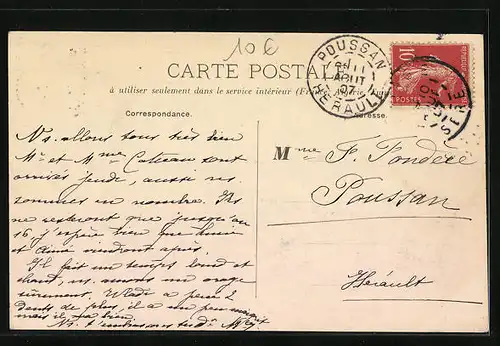 10€
CARTE POSTALE
à utiliser seulement dans le service intérieur (France, Algérie, Tunisie)
Correspondance.
Adresse.
POUSSAN
11
AOUT
07
HERAULT
10
POSTES
Ns. allons tous très bien
Mr et Mme Coteau sont
arrivés jeudi, aussi ns.
sommes en nombre. Ils
ne resteront que jusqu'au
16, j'espère bien que
et Aimé viendront après
Il fait un temps lourd et
chaud, ns. aurons un orage
sûrement. a percé 2
dents de plus, il a un peu maigri
mais il va bien.
Ns. t'embrassons
Mme F. Fondère
Poussan
Hérault